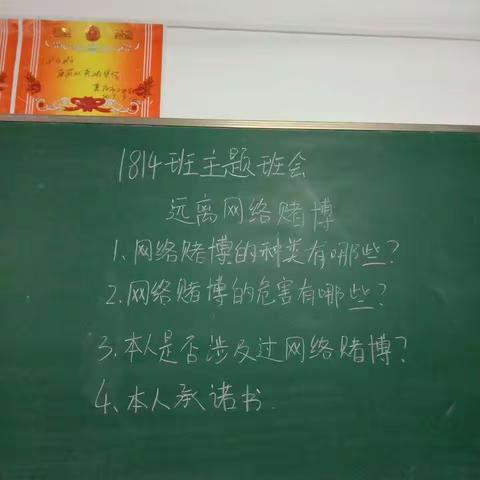 1814班主题班会
远离网络赌博
1、网络赌博的种类有哪些?
2、网络赌博的危害有哪些?
3、本人是否涉及过网络赌博?
4、本人承诺书